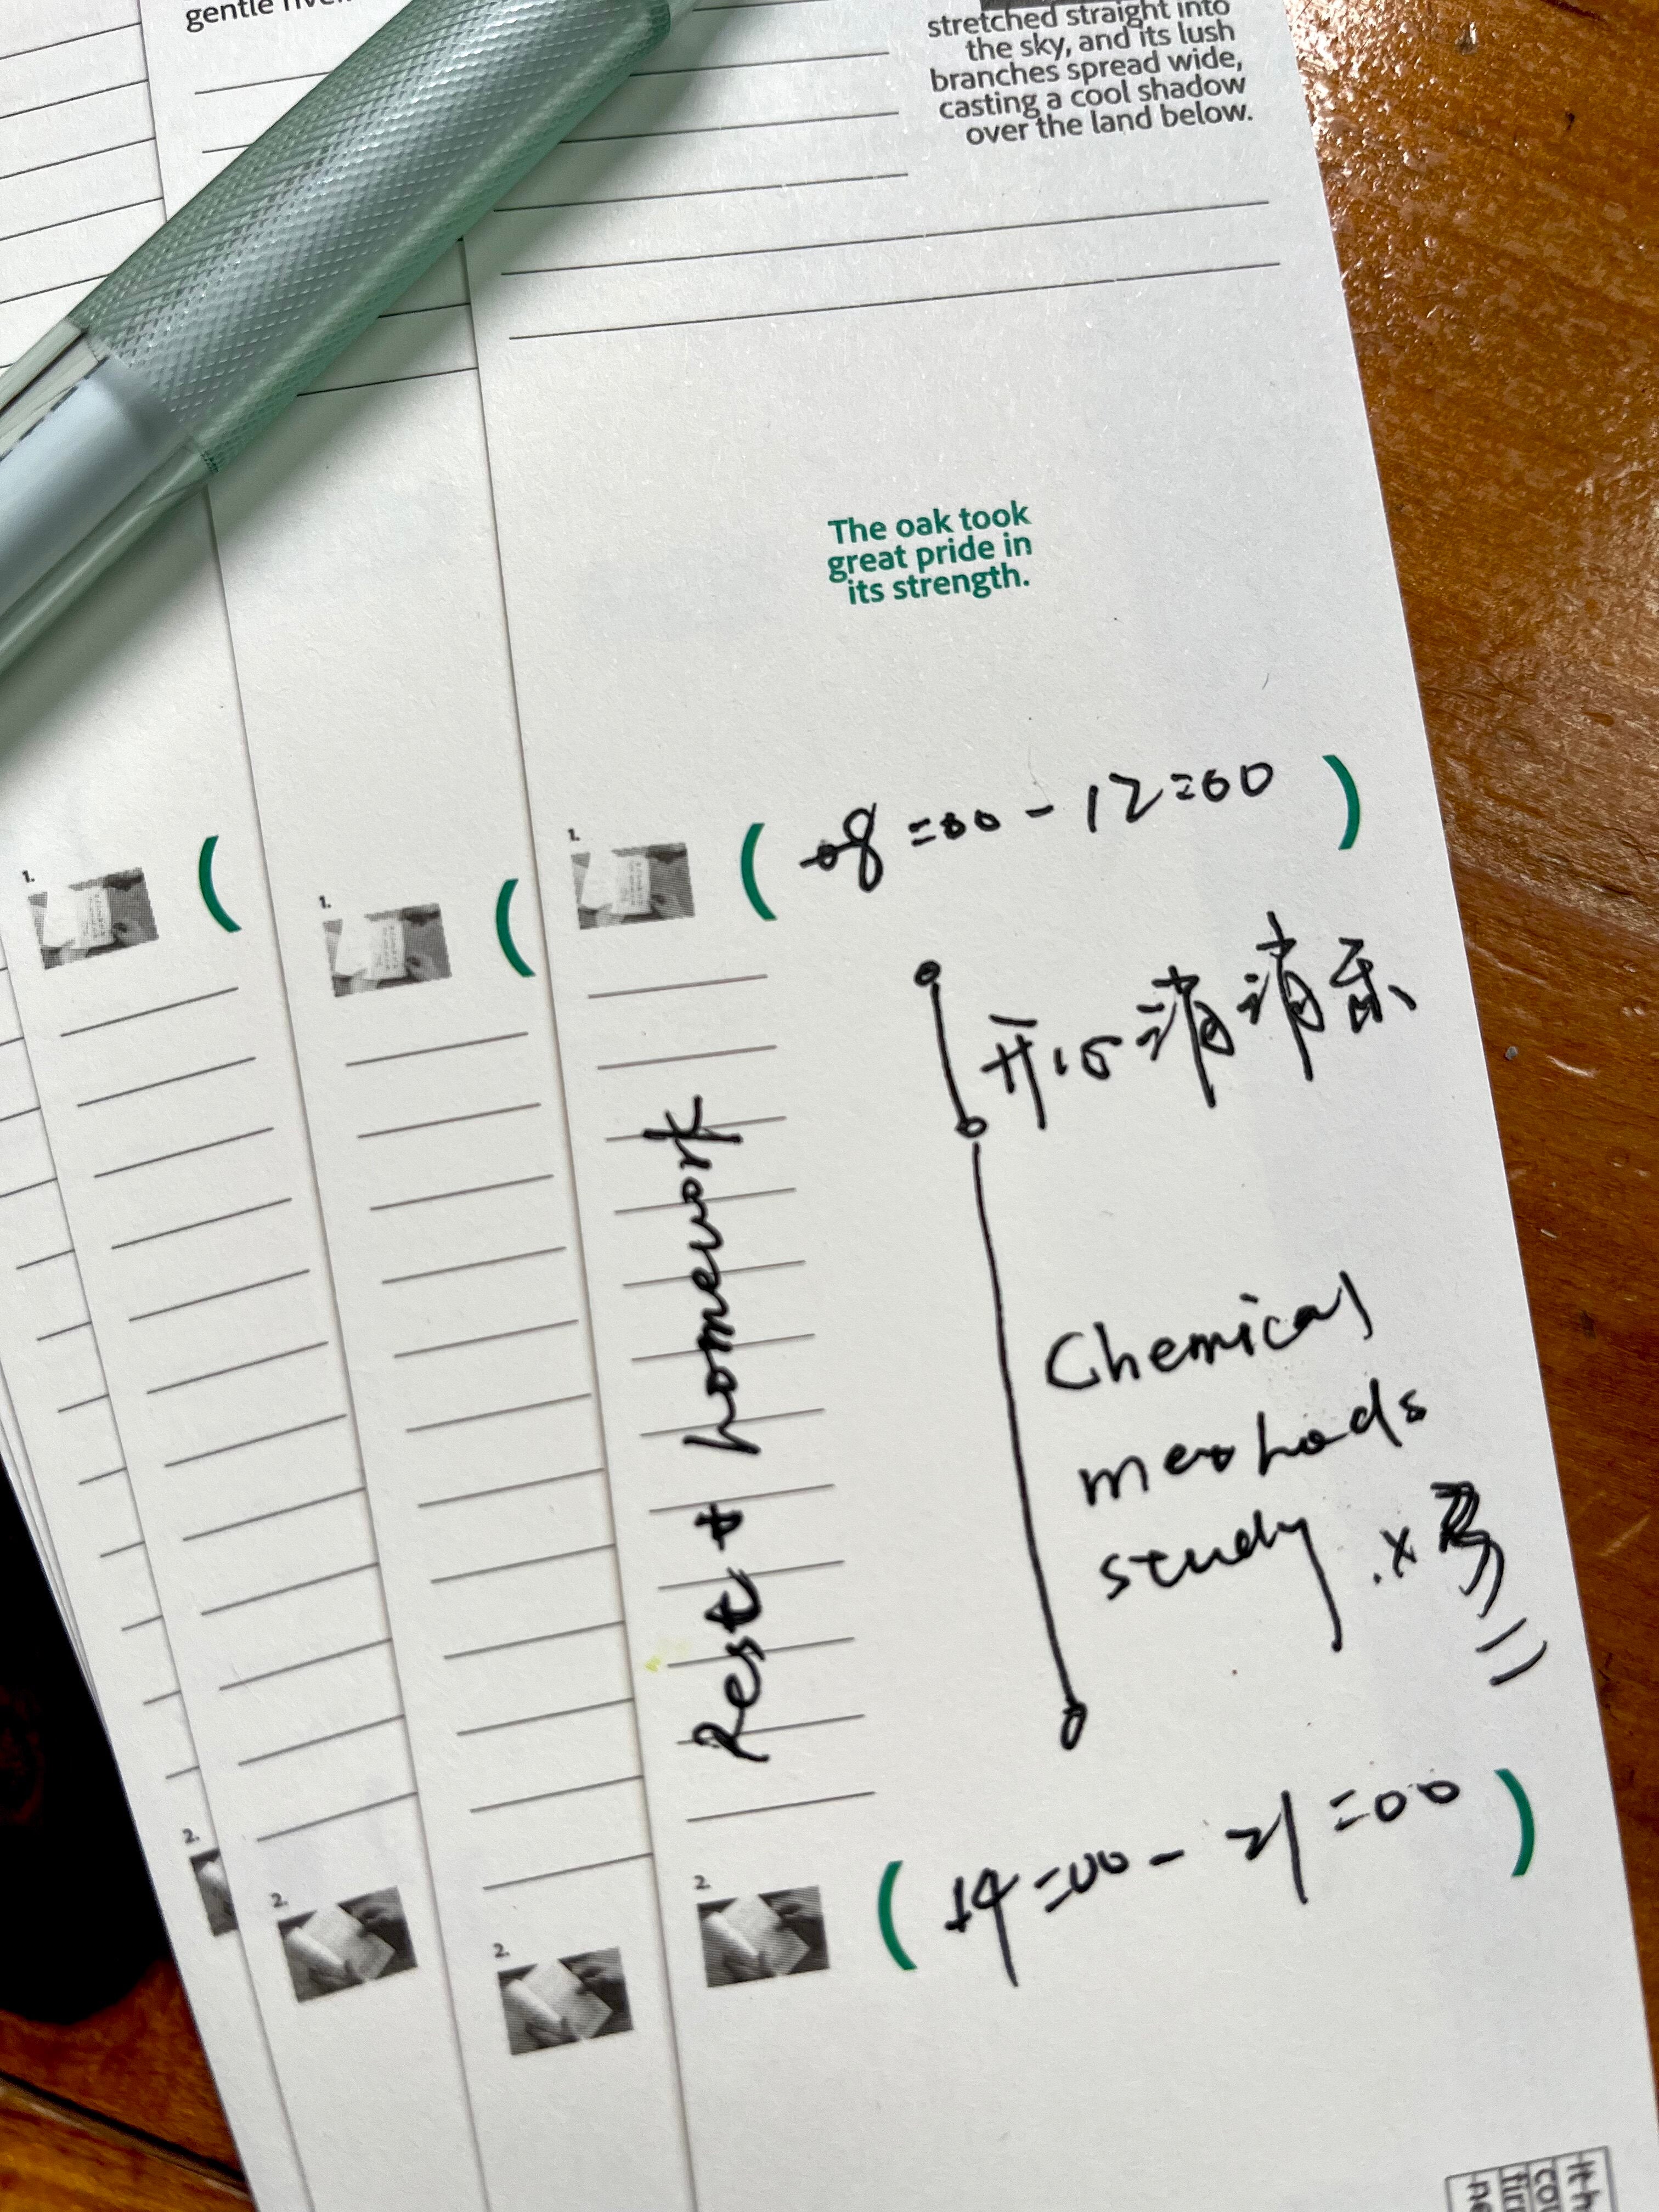 gentle
stretched straight into
the sky, and its lush
branches spread wide,
casting a cool shadow
over the land below.
The oak took
great pride in
its strength.
1.
1.
1.
( 08:00 - 12:00 )
开心消消乐
Rest + homework
Chemical
methods
study . ×
2.
2.
2.
2.
( 14:00 - 21:00 )